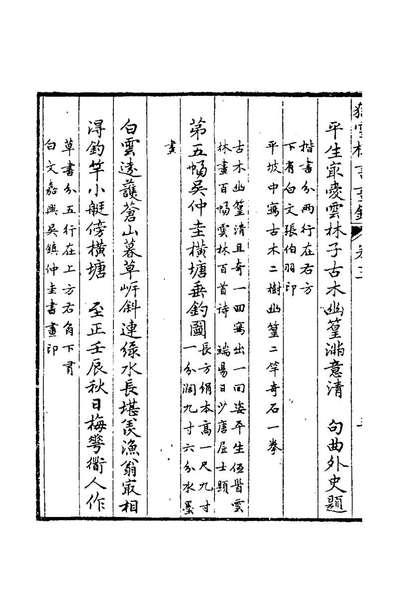 平生冣愛雲林子古木幽篁滿意清　句曲外史題
楷書分兩行在右方
下有白文張伯羽印
平坡中寫古木二樹幽篁二竿奇石一拳
古木幽篁清且奇一回寫出一回姿平生雲
林畫百幅雲林百首詩　端昜日少唐居士題
第五幅吳仲圭橫塘垂釣圖
長方絹本高一尺九寸
一分濶九寸六分水墨
畫
白雲遠護蒼山暮草岸斜連綠水長堪羨漁翁冣相
淂釣竿小艇傍橫塘　至正壬辰秋日梅花衜人作
草書分五行在上方右角下有
白文嘉興吳鎮仲圭書畫印